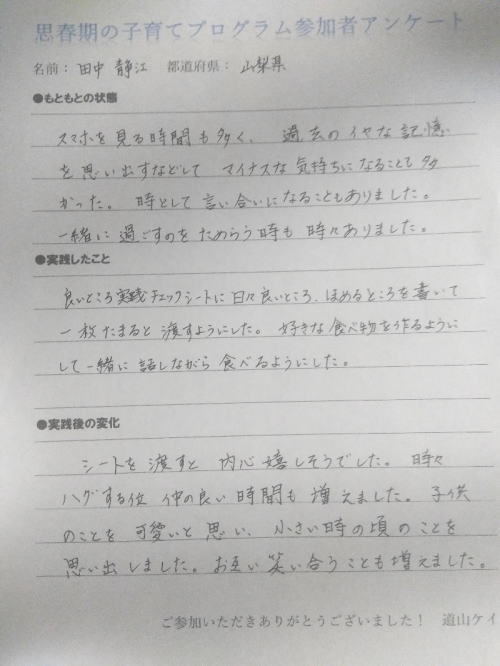 思春期の子育てプログラム参加者アンケート
名前： 田中 静江 都道府県： 山梨県
●もともとの状態
スマホを見る時間も多く、 過去のイヤな記憶
を思い出すなどして マイナスな気持ちになることも多
かった。 時として言い合いになることもありました。
一緒に過ごすのをためらう時も時々ありました。
●実践したこと
良いところ実践チェックシートに日々良いところ、ほめるところを書いて
一枚たまると渡すようにした。 好きな食べ物を作るように
して一緒に話しながら食べるようにした。
●実践後の変化
シートを渡すと 内心嬉しそうでした。 時々
ハグする位 仲の良い時間も増えました。子供
のことを可愛いと思い、小さい時の頃のことを
思い出しました。お互い笑い合うことも増えました。
ご参加いただきありがとうございました！ 道山ケイ